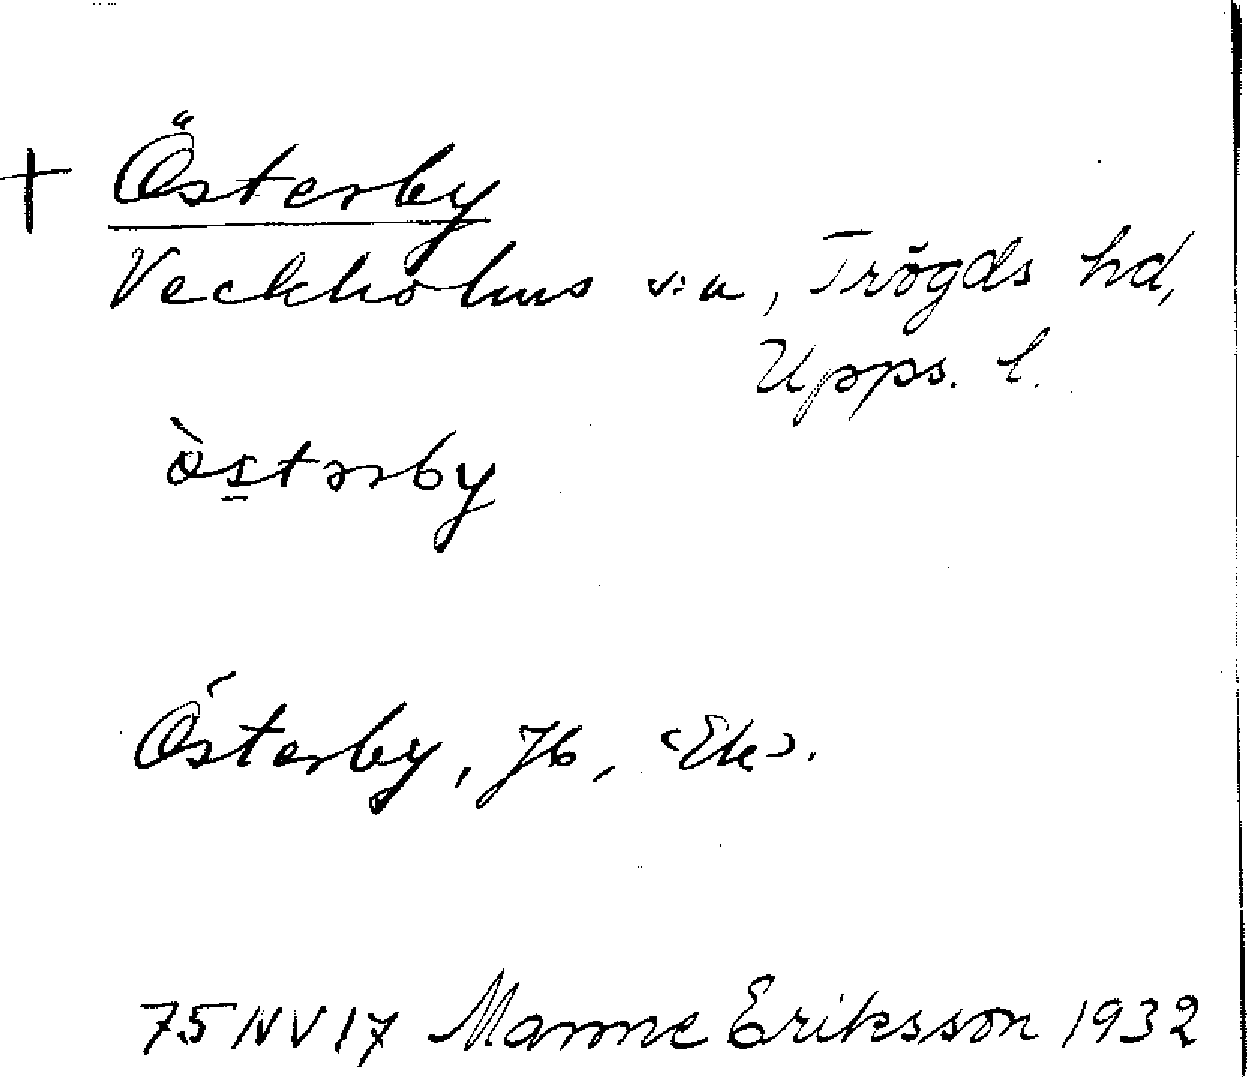 + Österby
Veckholms s:n, Trögds hd,
Upps. l.
òstərby
Österby, Jb, <Ek>.
75 NV 17 Manne Eriksson 1932